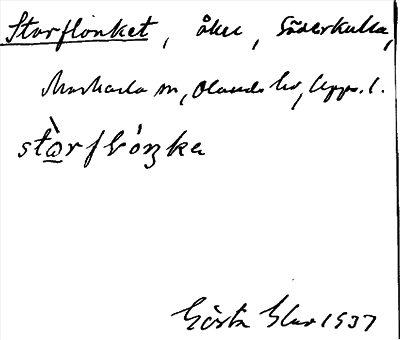 Storflonket, åker, Söderkulla,
Markarla sn, Olands hd, Upps. l.
stòrflóŋka
Gösta 1937